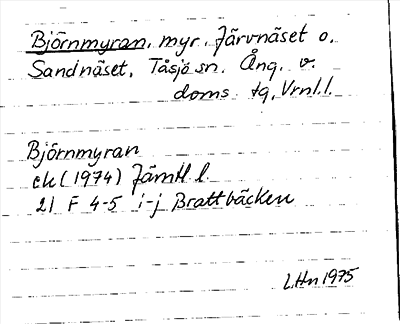 Björnmyran, myr, Järvnäset o.
Sandnäset, Tåsjö sn. Ång. v.
doms. tg, Vrnl. l.
Björnmyran
ek (1974) Jämtl l.
21 F 4-5 i-j Brattbäcken
L.Hn 1975